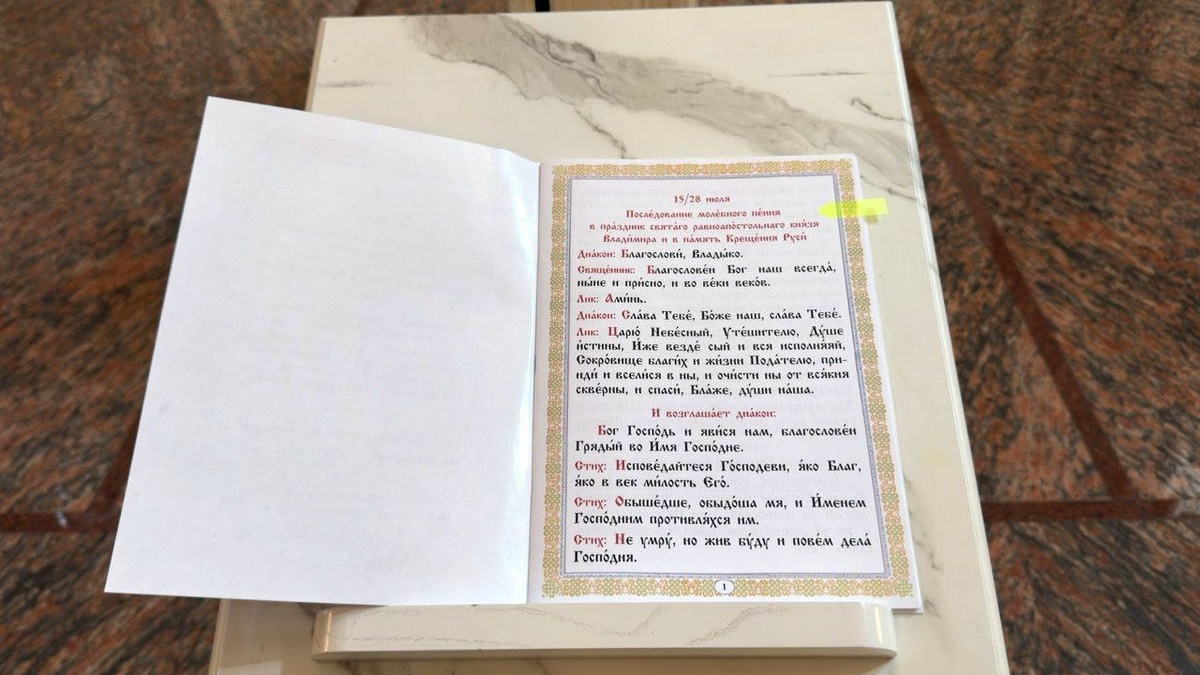 15/28 июля
Послѣ́дование моле́бного пе́ния
в пра́здник свята́го равноапо́стольнаго кня́зя
Влади́мира и в па́мять Креще́ния Руси́
Диа́кон: Благослови́, Влады́ко.
Свяще́нник: Благослове́н Бог наш всегда́,
ны́не и при́сно, и во ве́ки веко́в.
Лик: Ами́нь.
Диа́кон: Сла́ва Тебе́, Бо́же наш, сла́ва Тебе́.
Лик: Царю́ Небе́сный, Уте́шителю, Ду́ше
и́стины, И́же везде́ сый и вся исполня́яй,
Сокро́вище благи́х и жи́зни Пода́телю, при-
иди́ и всели́ся в ны, и очи́сти ны от вся́кия
скве́рны, и спаси́, Бла́же, ду́ши на́ша.
И возглаша́ет диа́кон:
Бог Госпо́дь и яви́ся нам, благослове́н
Гряды́й во И́мя Госпо́дне.
Стих: Испове́дайтеся Го́сподеви, я́ко Благ,
я́ко в век ми́лость Его́.
Стих: Обыше́дше, обыдо́ша мя, и И́менем
Госпо́дним противля́хся им.
Стих: Не умру́, но жив бу́ду и пове́м дела́
Госпо́дня.
1